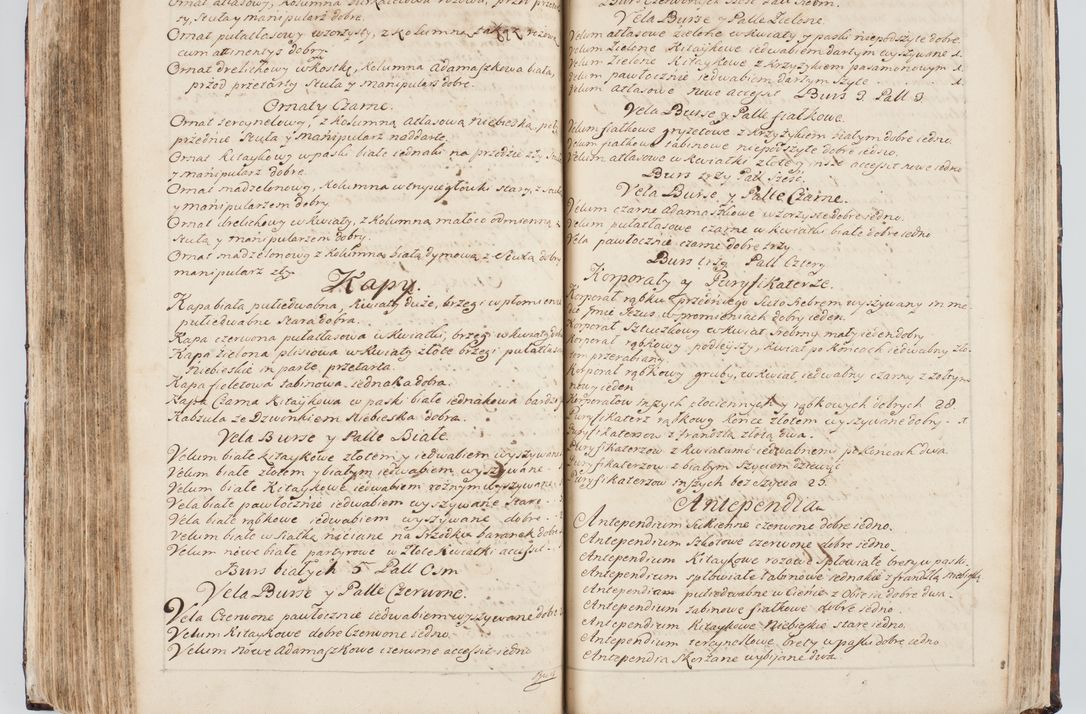 Ornat atłasowy, kolumna
sty, Stuła y manipularz dobre.
Ornat pułatłasowy wzorzysty, z kolumną
cum attinentys dobry.
Ornat drelichowy w kostkę, kolumna adamaszkowa biała,
przod przetarty Stuła y manipularz dobre.
Ornaty Czarne.
Ornat z kolumną atłasową niebieską,
przednie Stuła y manipularz naddarte.
Ornat kitaykowy w paski białe iednaki na przedzie zły
y manipularz dobre.
Ornat madzelonowy, kolumna w trupie głowki stary, z Stułą
y manipularzem dobry.
Ornat drelichowy w kwiaty, z kolumną mało co odmienną z
Stułą y manipularzem dobry.
Ornat madzelonowy z kolumną białą dymową z Stułką dobry
manipularz zły.
Kapy.
Kapa biała pułiedwabna, kwiaty duże, brzegi w płomienie
pułiedwabne stara dobra.
Kapa czerwona pułatłasowa w kwiatki, brzegi w kwiaty
Kapa zielona plisiowa w kwiaty złote brzegi pułatłasowe
niebieskie in parte przetarta.
Kapa fioletowa tabinowa iednaka dobra.
Kapa Czarna Kitaykowa w paski białe iednakowa bardzo
Kabzula ze Dzwonkiem Niebieska dobra.
Vela Bursę y Palle Białe.
Velum białe kitaykowe złotem y iedwabiem wyszywane
Velum białe złotem y białym iedwabiem wyszywane.
Velum białe Kitaykowe iedwabiem rożnym wyszywane.
Vela białe pawłocznie iedwabiem wyszywane stare.
Vela białe rąbkowe iedwabiem wyszywane dobre.
Velum białe w siatkę niciane na srzodku baranek dobre
Velum nowe białe partyrowe w złote kwiatki accessit.
Burs białych 5 Pall Osm
Vela Bursę y Palle Czerwone.
Vela Czerwone pawłocznie iedwabiem wyszywane dobre
Velum Kitaykowe dobre Czerwone iedno.
Velum Nowe Adamaszkowe czerwone accessit iedno

Vela Bursę y Palle Zielone.
Velum atłasowe zielone w kwiaty y paski niepodszyte dobre
Velum zielone Kitaykowe iedwabiem dartym wyszywane 1.
Velum zielone Kitaykowe z krzyżykiem pasamonowym 1.
Velum pawłocznie iedwabiem dartym szyte 1.
Velum atłasowe nowe accessit Burs 3. Pall 3.
Vela Bursę y Palle fiałkowe.
Velum fiałkowe gryzetowe z krzyżykiem białym dobre iedno.
Velum fiałkowe tabinowe niepodszyte dobre iedno.
Velum atłasowe w kwiatki złote y accessit nowe iedno
Burs trzy Pall Sześć.
Vela Bursę y Palle Czarne.
Velum czarne adamaszkowe wzorzyste dobre iedno.
Velum pułatłasowe czarne w kwiatki białe dobre iedno
Vela pawłocznie czarne dobre trzy
Burs trzy Pall Cztery
Korporały y Puryfikaterze.
Korporał rąbku przedniego suto srebrem wyszywany in me-
Imie Jezus w promieniach dobry ieden.
Korporał Sztuczkowy w kwiat srebrny mały ieden dobry
Korporał rąbkowy podleyszy, kwiat po koncach iedwabny zło-
tem przerabiany.
Korporał rąbkowy gruby, w kwiat iedwabny czarny z żołtym
nowy ieden
Korporałow inszych płociennych y rąbkowych dobrych 28.
Puryfikaterz rąbkowy konce złotem wyszywane dobry 1
Puryfikaterzow z frandzlą złotą dwa.
Puryfikaterzow z kwiatami iedwabnemi po koncach dwa.
Puryfikaterzow z białym szyciem dziewięć
Puryfikaterzow inszych bez szycia 25.
Antependia
Antependium Sukienne czerwone dobre iedno.
Antependium Szkotowe czerwone dobre iedno
Antependium Kitaykowe rożowe spłowiałe brety w paski
Antependium spłowiałe tabinowe iednakie z frandzlą
Antependium pułiedwabne w Cienie z Obiciа dobre dwa.
Antependium tabinowe fiałkowe dobre iedno.
Antependium Kitaykowe niebieskie stare iedno.
Antependium tercynellowe brety w paski dobre iedno
Antependia skorzane wybijane dwa